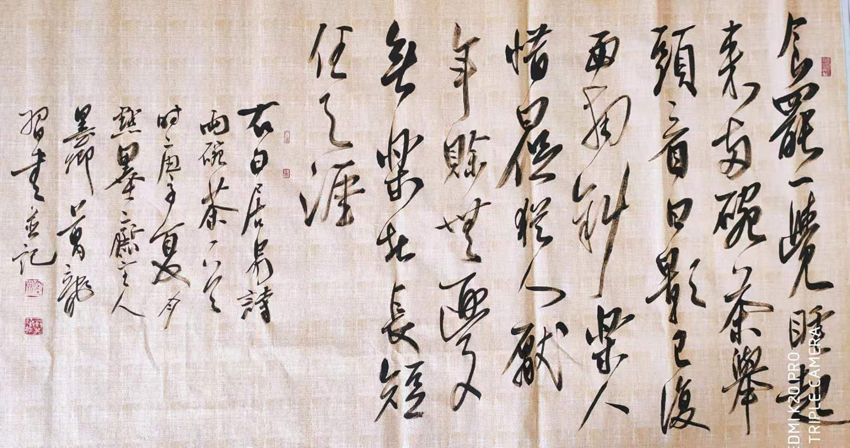 食罷一覺睡起
来两碗茶舉
頭看日影已復
西南斜樂人
惜日促憂人厭
年賒無憂
無樂者長短
任生涯
右白居易詩
兩碗茶一首
时庚子夏月
墨齋主人
墨卿萬龍
習書並記
EDMI K20 PRO
TRIPLE CAMERA